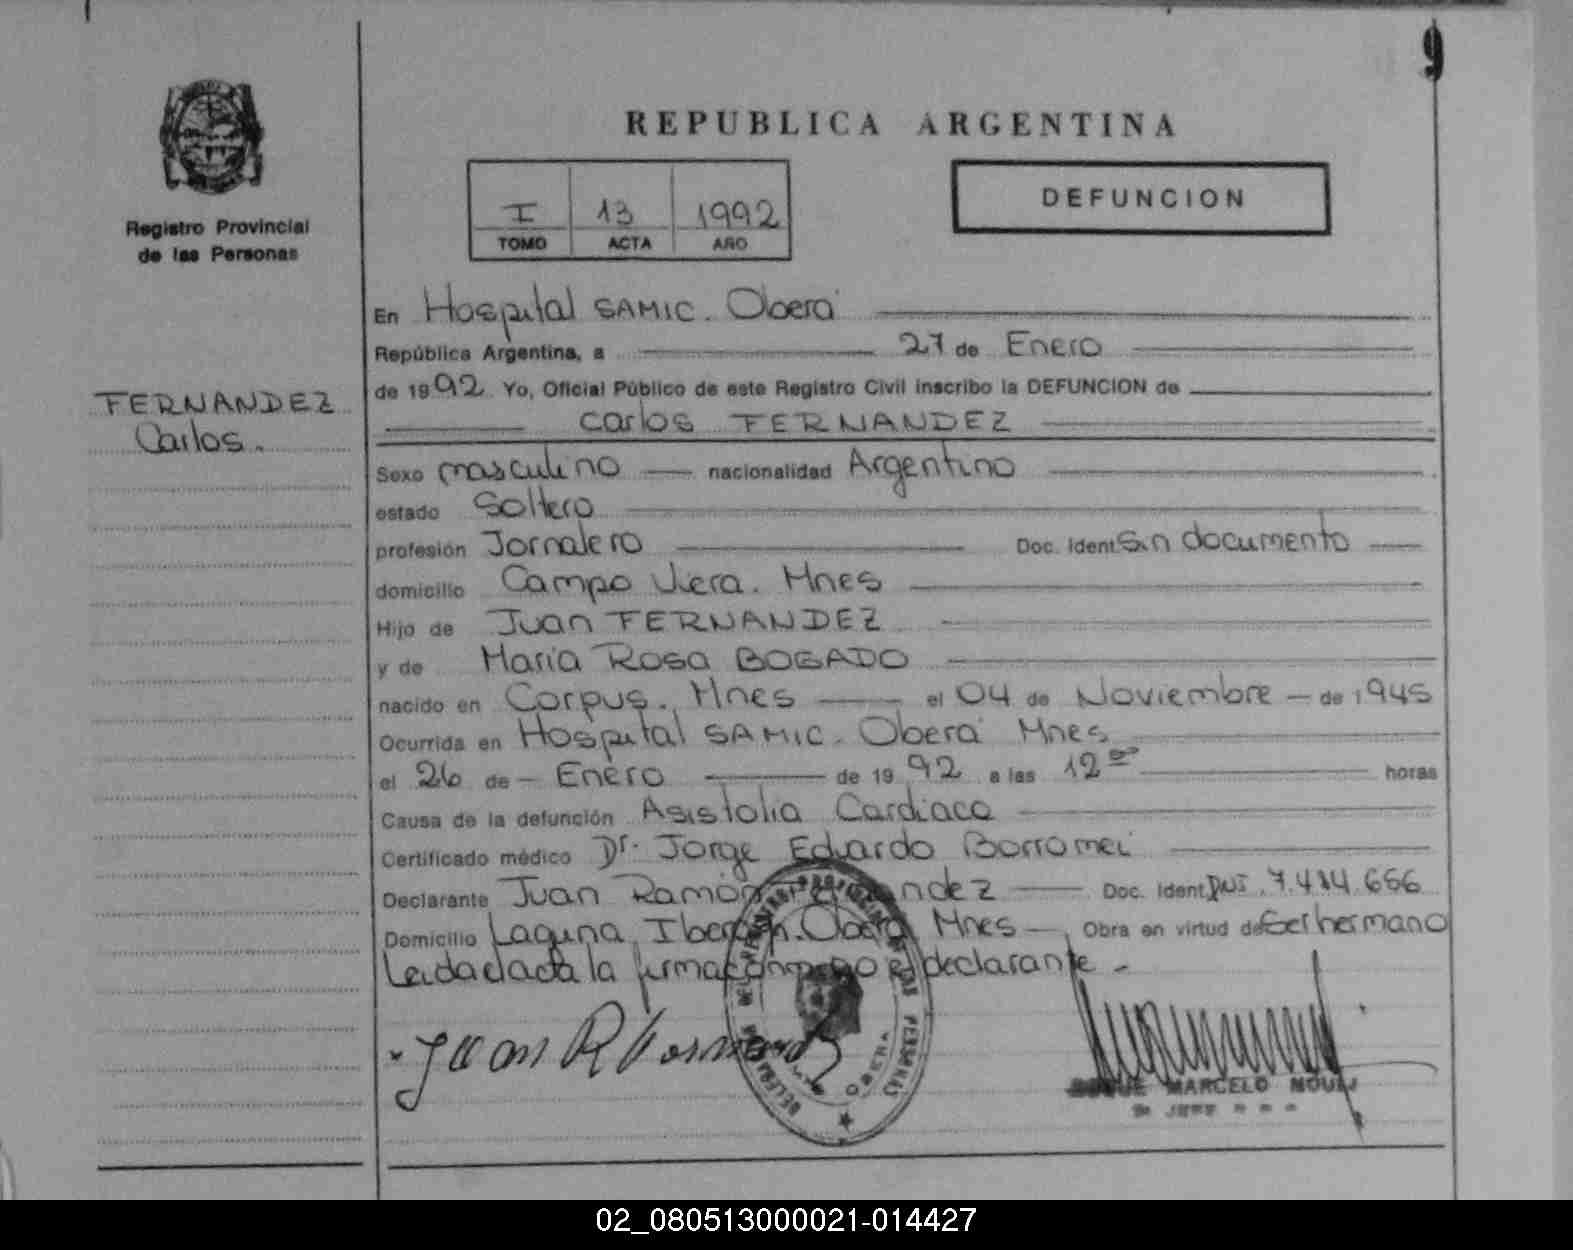 9
REPUBLICA ARGENTINA
Registro Provincial
de las Personas
I 13 1992
TOMO ACTA AÑO
DEFUNCION
FERNANDEZ
Carlos.
En Hospital SAMIC. Oberá
República Argentina, a 27 de Enero
de 1992 Yo, Oficial Público de este Registro Civil inscribo la DEFUNCION de
Carlos FERNANDEZ
Sexo masculino nacionalidad Argentino
estado Soltero
profesión Jornalero Doc. Ident. Sin documento
domicilio Campo Viera. Mnes
Hijo de Juan FERNANDEZ
y de Maria Rosa BOGADO
nacido en Corpus. Mnes el 04 de Noviembre de 1945
Ocurrida en Hospital SAMIC. Oberá Mnes
el 26 de Enero de 1992 a las 12 horas
Causa de la defunción Asistolia Cardiaca
Certificado médico Dr. Jorge Eduardo Borromei
Declarante Juan Ramón Fernandez Doc. Ident. DNI. 7.414.656
Domicilio Laguna Iberá. Oberá Mnes Obra en virtud de Ser hermano
Leida el acta la firma conmigo el declarante
Juan R Fernandez
OBERA
MARCELO
02_080513000021-014427